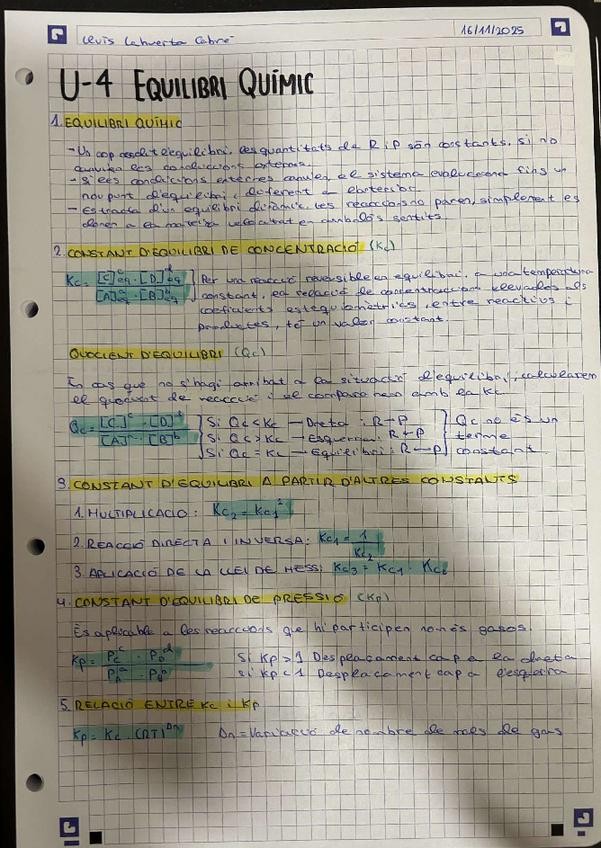 Lluís Lahuerta Cabré
16/11/2025
U-4 EQUILIBRI QUÍMIC
1. EQUILIBRI QUÍMIC
- Un cop assolit l'equilibri, les quantitats de R i P són constants, si no
canvien les condicions externes.
- Si les condicions externes canvien, el sistema evolucionarà fins un
nou punt d'equilibri, diferent a l'anterior.
- Es tracta d'un equilibri dinàmic, les reaccions no paren, simplement es
donen a la mateixa velocitat en ambdós sentits.
2. CONSTANT D'EQUILIBRI DE CONCENTRACIÓ (Kc)
Kc = [C]^c eq · [D]^d eq / [A]^a eq · [B]^b eq
Per una reacció reversible en equilibri, a una temperatura
constant, la relació de concentracions elevades als
coeficients estequiomètrics, entre reactius i
productes, té un valor constant.
QUOCIENT D'EQUILIBRI (Qc)
En cas que no s'hagi arribat a la situació d'equilibri, calcularem
el quocient de reacció i el compararem amb la Kc.
Qc = [C]^c · [D]^d / [A]^a · [B]^b
Si Qc < Kc → Dreta: R → P
Si Qc > Kc → Esquerra: R ← P
Si Qc = Kc → Equilibri: R ↔ P
Qc no és un
terme
constant
3. CONSTANT D'EQUILIBRI A PARTIR D'ALTRES CONSTANTS
1. MULTIPLICACIÓ: Kc2 = Kc1²
2. REACCIÓ DIRECTA I INVERSA: Kc1 = 1 / Kc2
3. APLICACIÓ DE LA LLEI DE HESS: Kc3 = Kc1 · Kc2
4. CONSTANT D'EQUILIBRI DE PRESSIÓ (Kp)
És aplicable a les reaccions que hi participen només gasos.
Kp = Pc^c · PD^d / PA^a · PB^b
Si Kp > 1 Desplaçament cap a la dreta
Si Kp < 1 Desplaçament cap a l'esquerra
5. RELACIÓ ENTRE Kc i Kp
Kp = Kc · (RT)^Δn
Δn = Variació de nombre de mols de gas